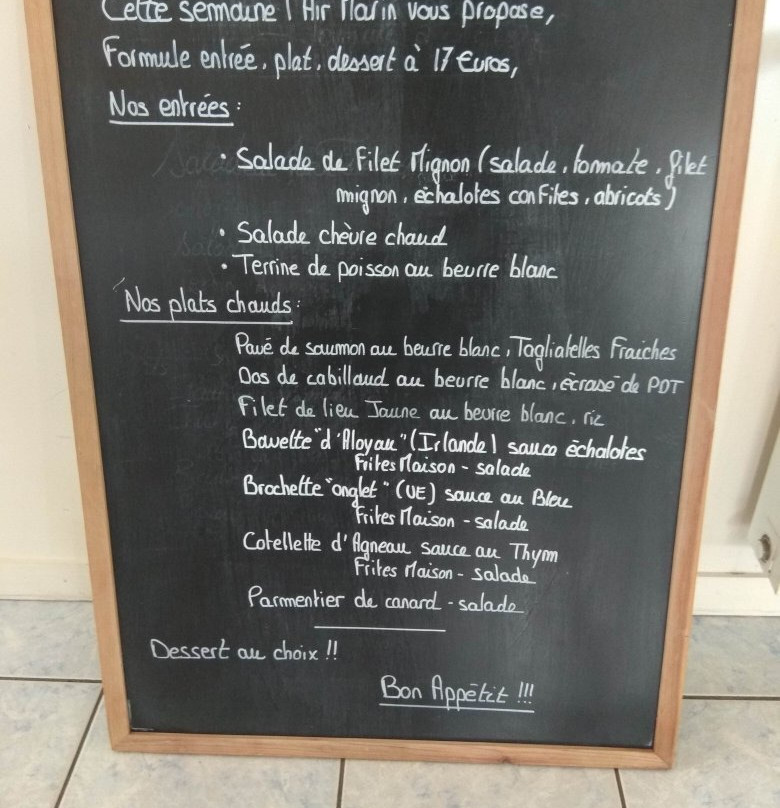 Cette semaine l'Air Marin vous propose,
Formule entrée, plat, dessert à 17 Euros,
Nos entrées :
• Salade de Filet Mignon (salade, tomate, filet
mignon, échalotes confites, abricots)
• Salade chèvre chaud
• Terrine de poisson au beurre blanc
Nos plats chauds :
Pavé de saumon au beurre blanc, Tagliatelles Fraiches
Dos de cabillaud au beurre blanc, écrasé de PDT
Filet de lieu Jaune au beurre blanc, riz
Bavette "d'Aloyau" (Irlande) sauce échalotes
Frites Maison - salade
Brochette "onglet" (UE) sauce au Bleu
Frites Maison - salade
Cotellette d'Agneau sauce au Thym
Frites Maison - salade
Parmentier de canard - salade
Dessert au choix !!
Bon Appétit !!!